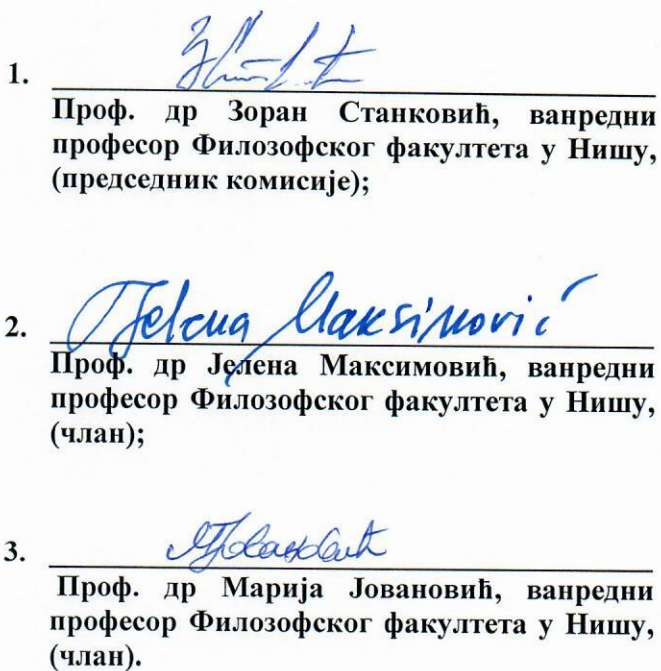 1.
Проф. др Зоран Станковић, ванредни
професор Филозофског факултета у Нишу,
(председник комисије);
2. Jelena Maksimović
Проф. др Јелена Максимовић, ванредни
професор Филозофског факултета у Нишу,
(члан);
3.
Проф. др Марија Јовановић, ванредни
професор Филозофског факултета у Нишу,
(члан).